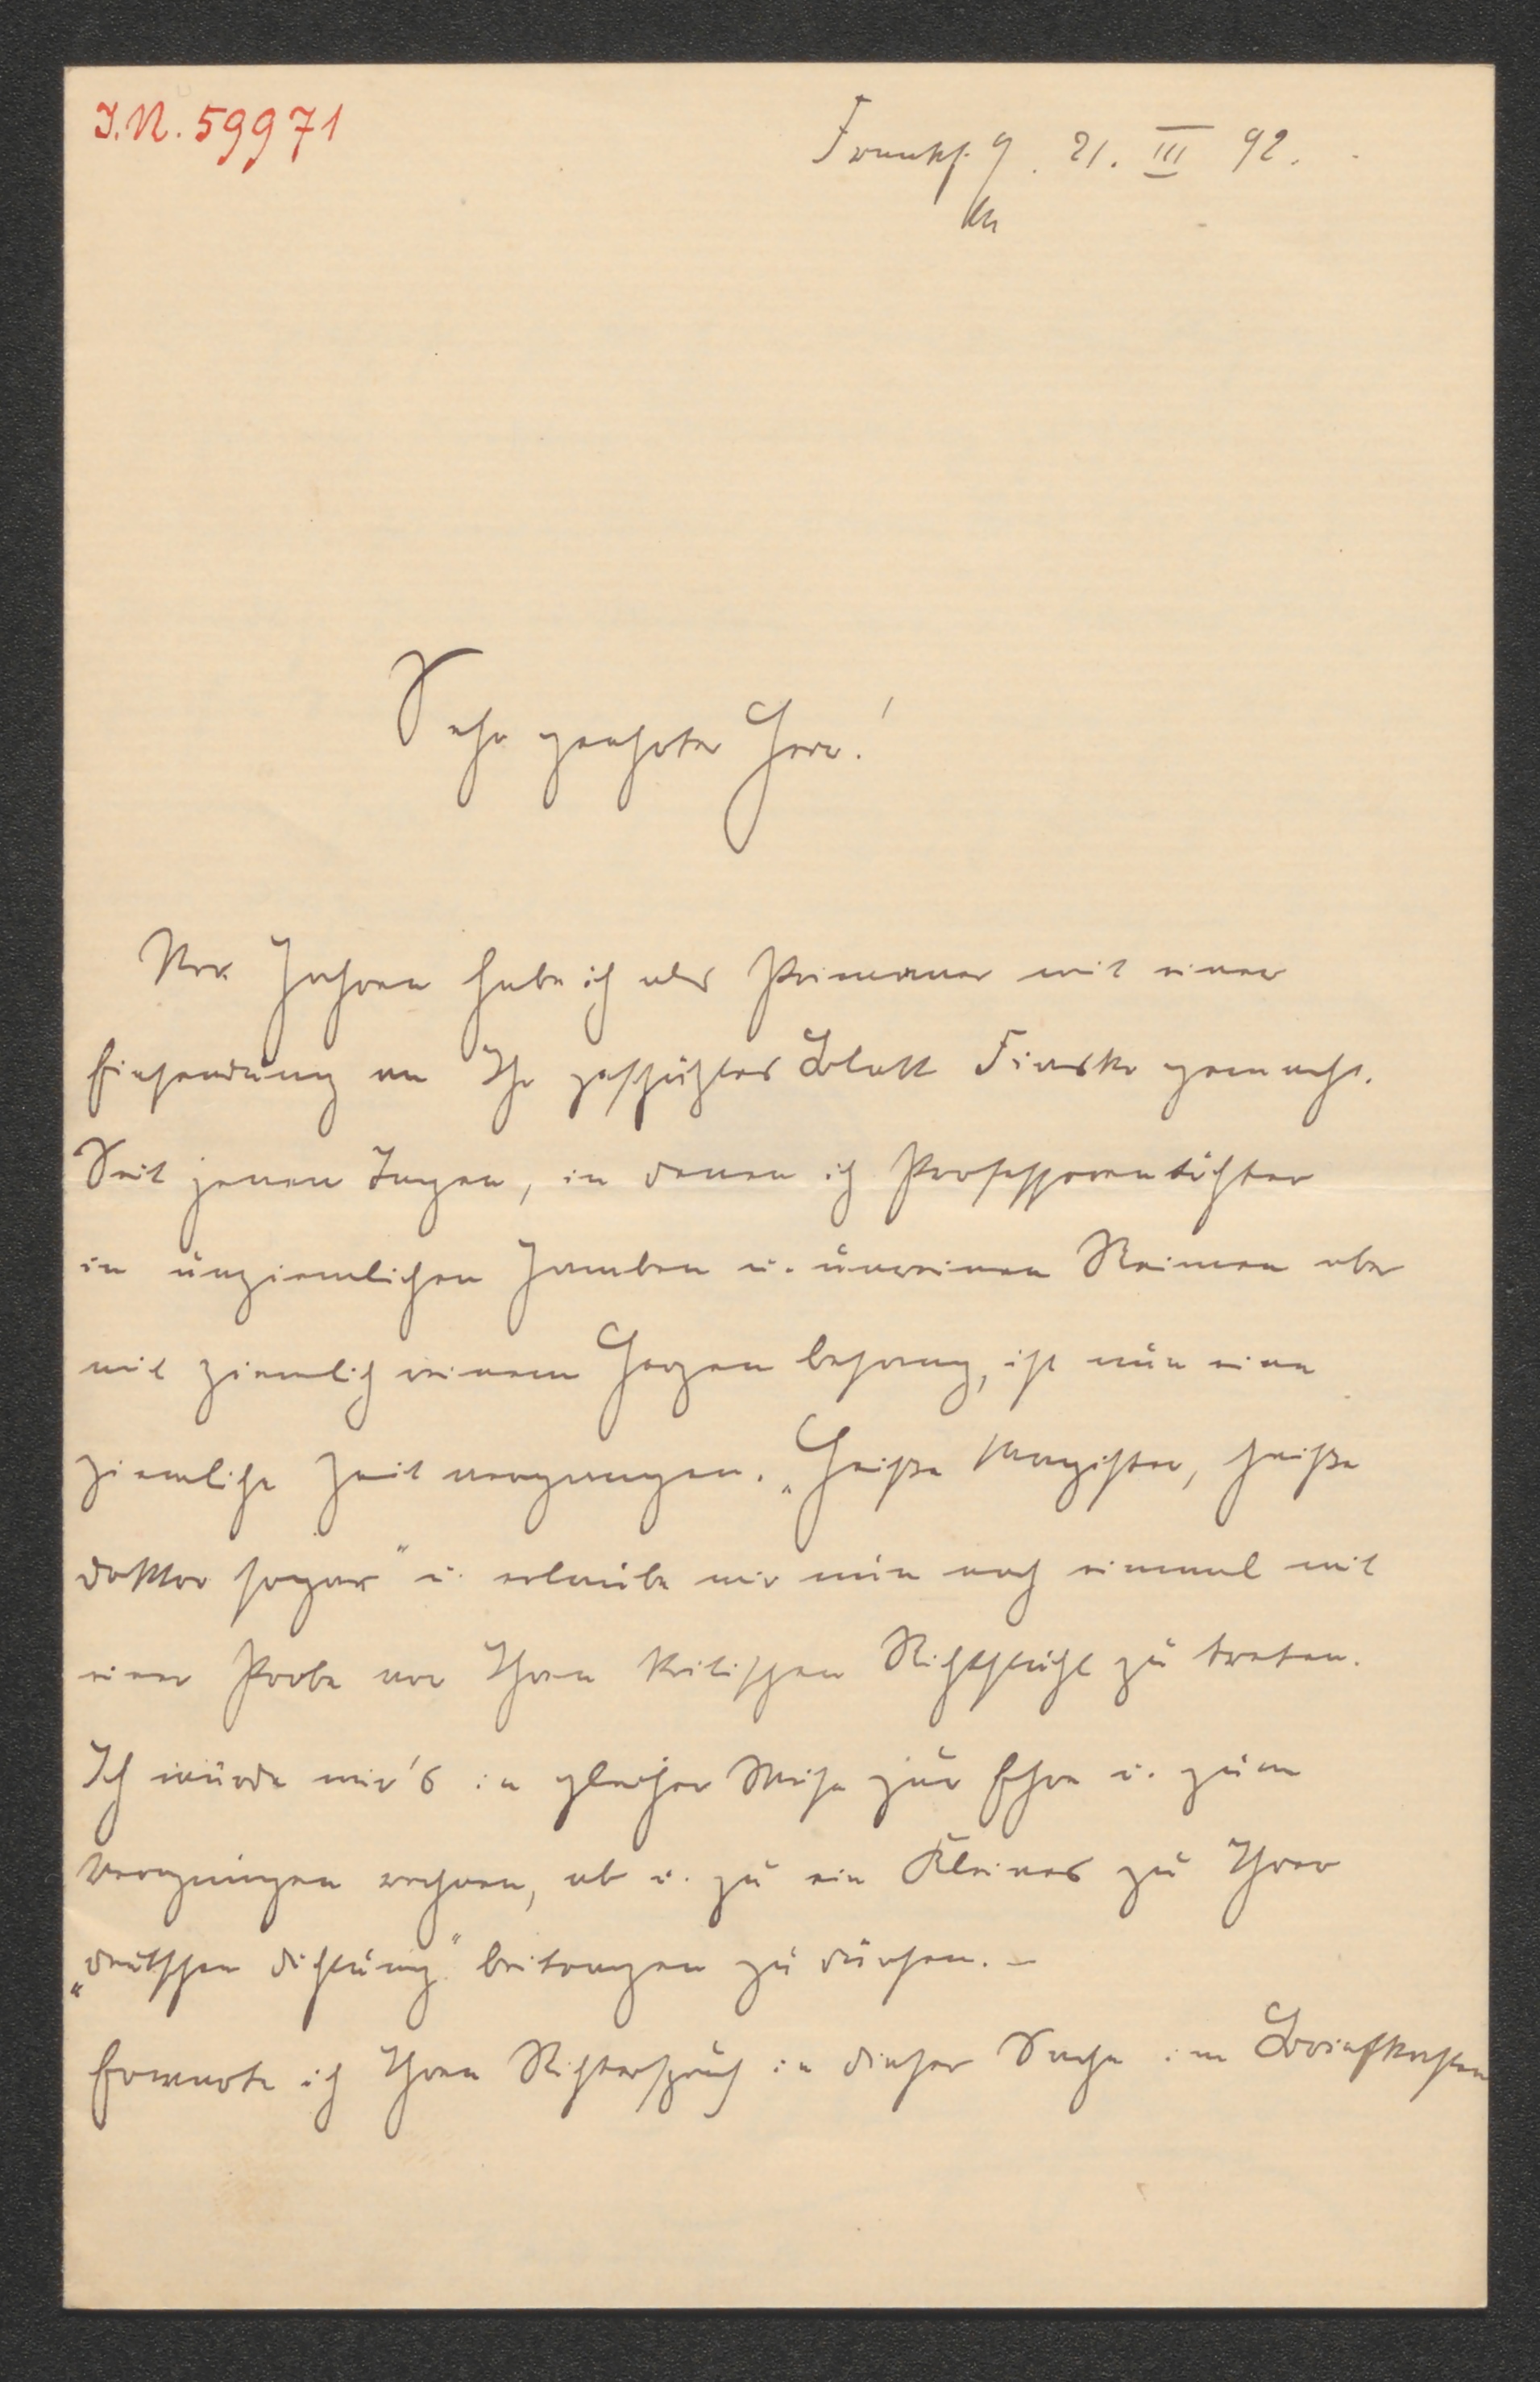 J.N. 59971
Frankf. 21. III 92.
Sehr geehrter Herr!
Vor Jahren habe ich als Primaner mit einer
Einsendung an Ihr geschätztes Blatt Fiasko gemacht.
Seit jenen Tagen, in denen ich Professorentöchter
in unziemlichen Jamben u. unreinen Reimen aber
mit ziemlich reinem Herzen besang, ist nun eine
ziemliche Zeit vergangen. „Heiße Magister, heiße
Doktor sogar" u. erlaube mir nun noch einmal mit
einer Probe vor Ihren kritischen Richtstuhl zu treten.
Ich würde mir's in gleicher Weise zur Ehre u. zum
Vergnügen rechnen, ab u. zu ein Kleines zu Ihrer
„Deutschen Dichtung" beitragen zu dürfen. –
Erwarte ich Ihren Richterspruch in dieser Sache im Briefkasten